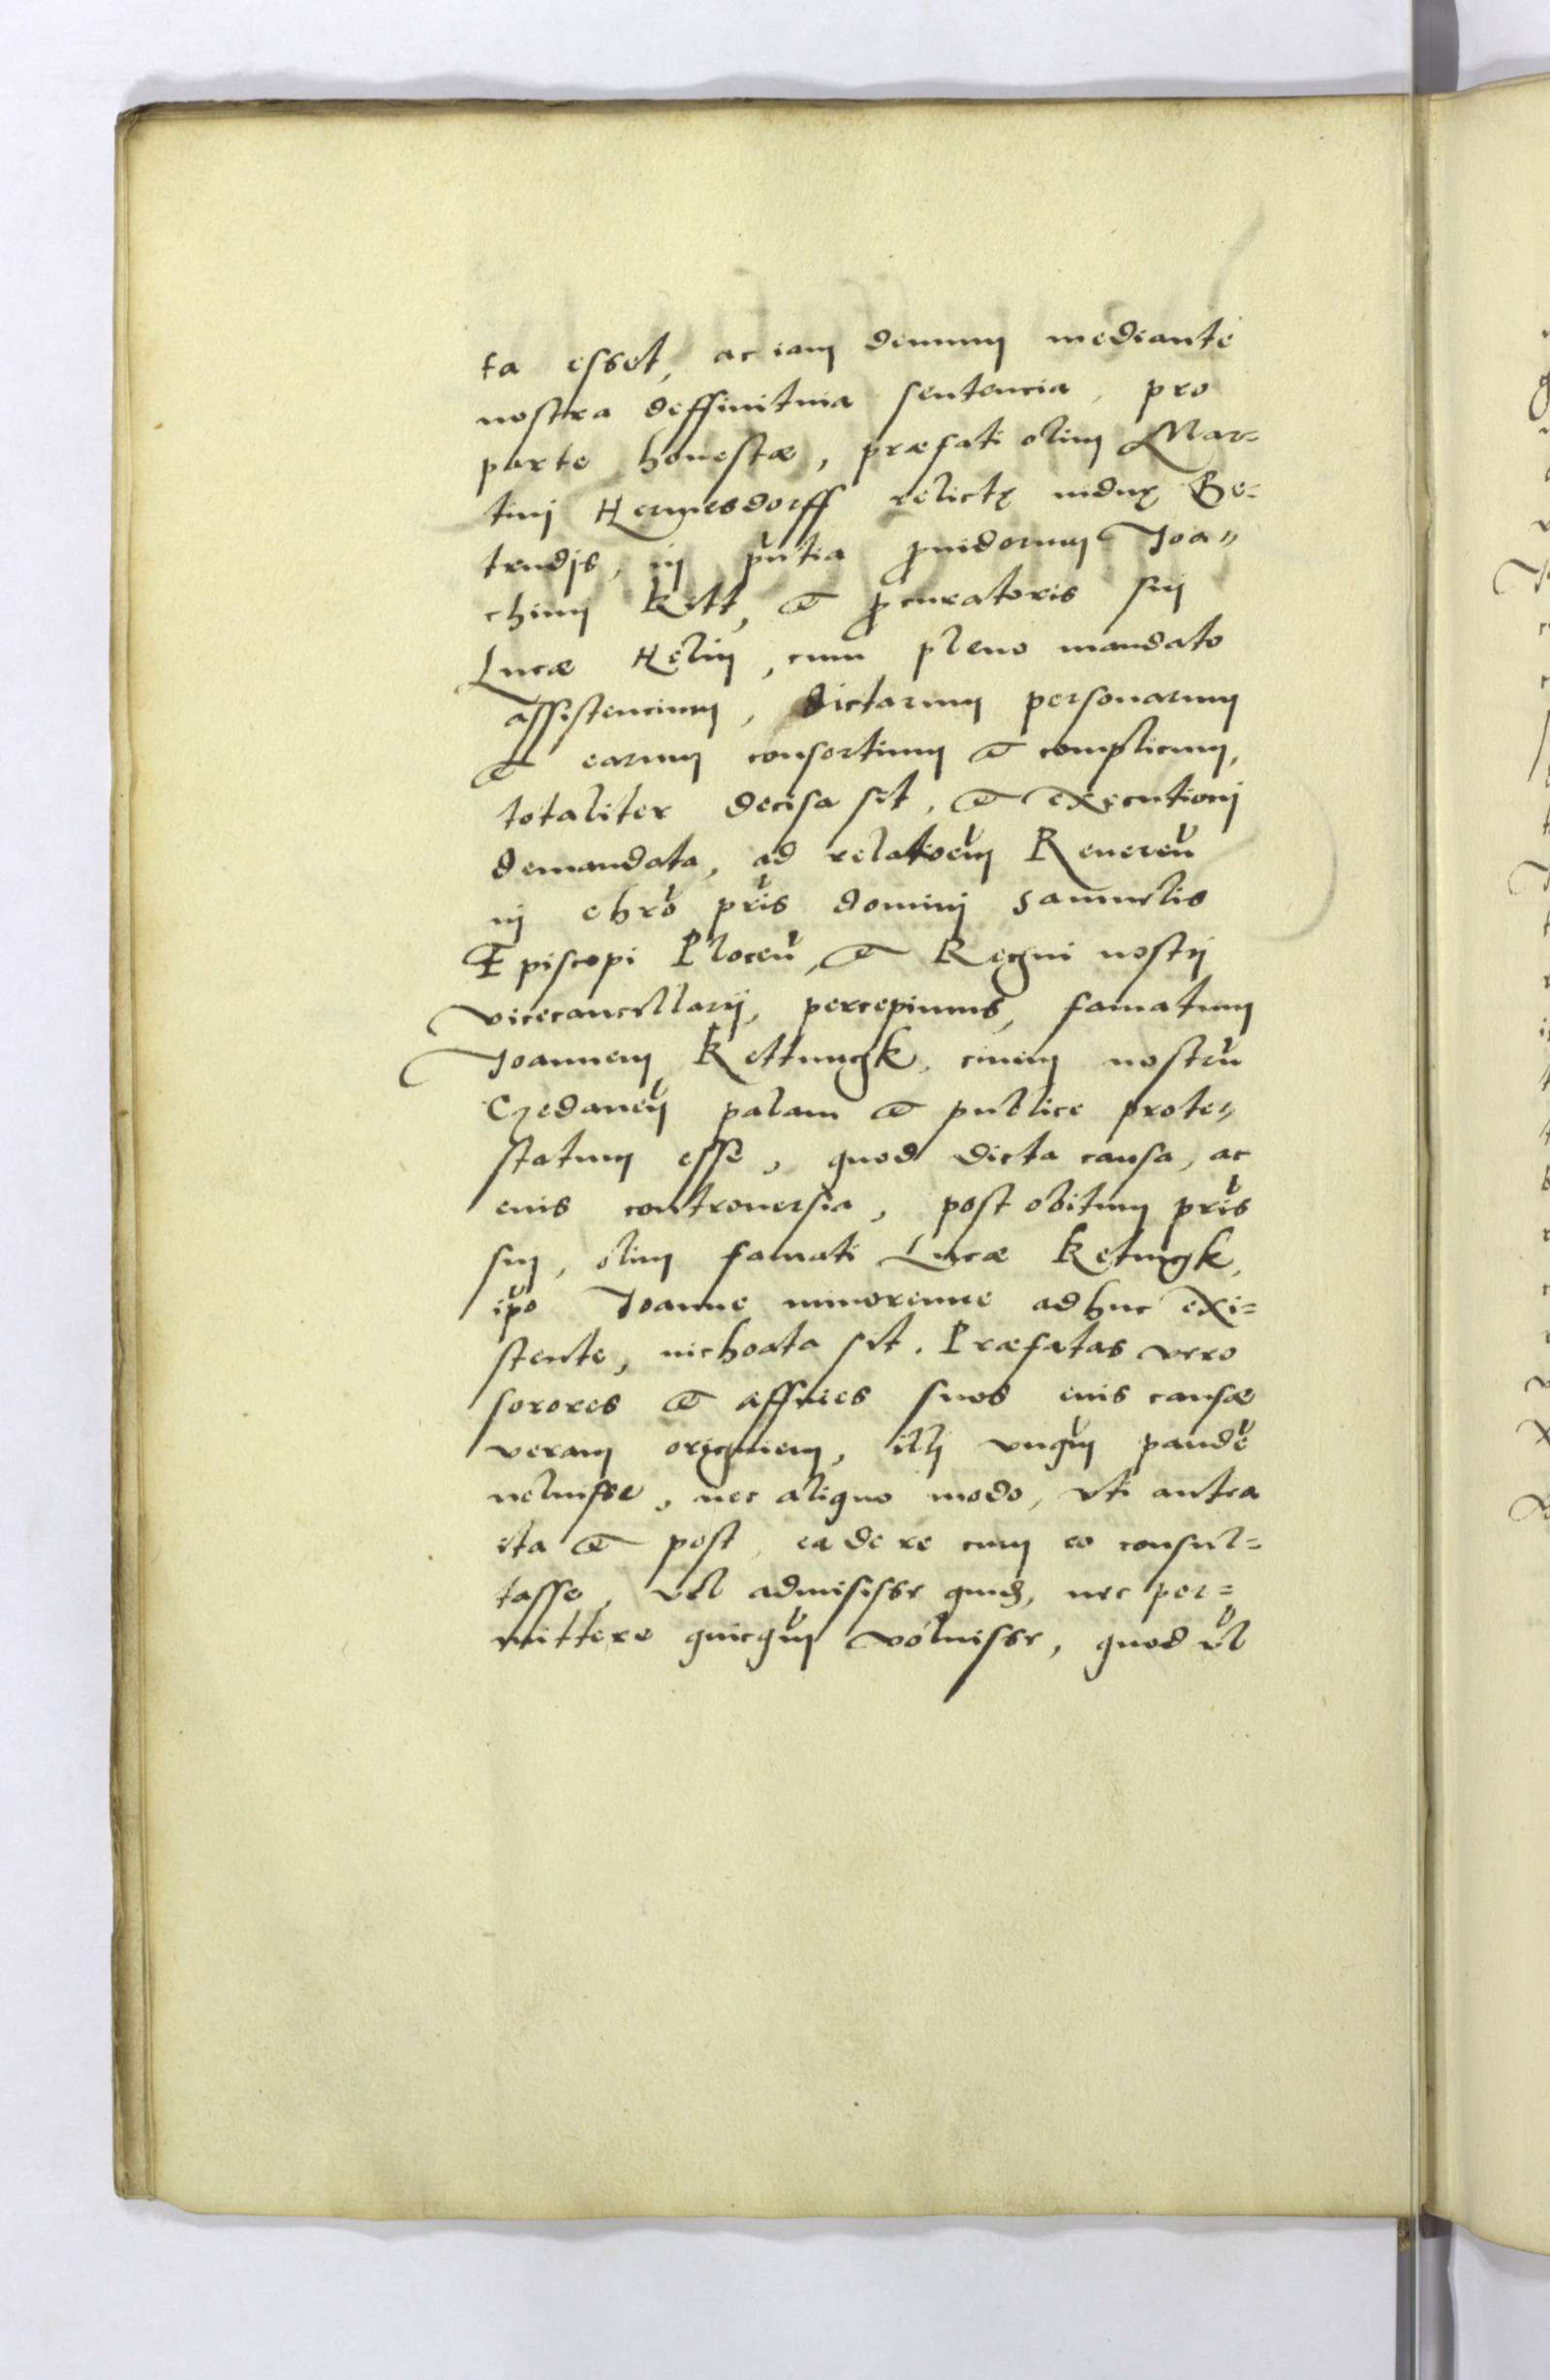 ta esset, ac iam demum mediante
nostra deffinitiua sentencia, pro
parte honestæ, præfati olim Mar=
tini Hermesdorff relictę viduę Ge=
trudis, in pñtia ꝓuidorum Joa=
chimi Kitt, & ꝓcuratoris sui
Lucæ Helin, cum pleno mandato
assistencium, dictarum personarum
& earum consortium & complicum,
totaliter decisa sit, & executioni
demandata, ad relatioem Reueren
in chro pris domini Samuelis
Episcopi Plocen, & Regni nostri
vicecancellarij, percepimus, famatum
Joannem Kettingk, ciuem nostru
Gedanen palam & publice prote=
statum esse, quod dicta causa, ac
eius controuersia, post obitum pris
sui, olim famati Lucæ Ketingk,
ipo Joanne minorenne adhuc exi=
stente, inchoata sit. Præfatas vero
sorores & affines suos eius causæ
veram originem, illi vnqum pande
noluisse, nec aliquo modo, vti antea
ita & post, ea de re cum eo consul=
tasse, vel admisisse quid, nec per=
mittere quicqum voluisse, quod vl